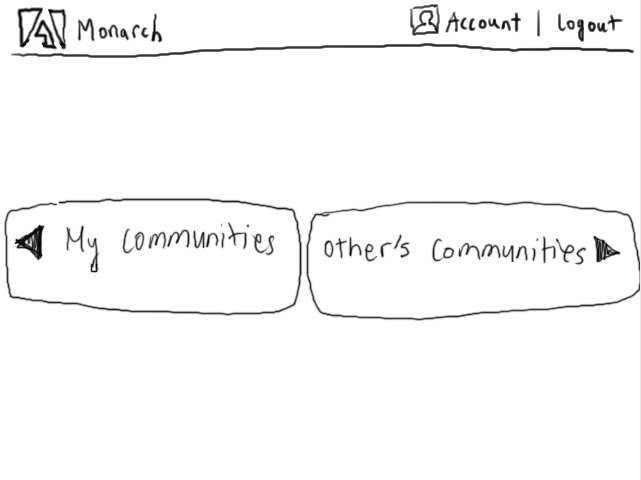 Monarch
Account | Logout
My communities
other's communities